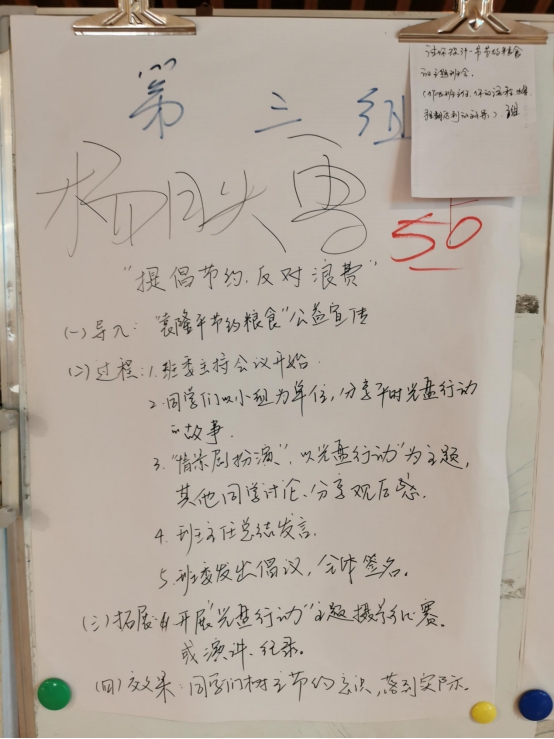 第三组
请你设计一节节约粮食
的主题班会。
50
"提倡节约、反对浪费"
(一)导入:"袁隆平节约粮食"公益宣传
(二)过程:1.班委主持会议开始.
2.同学们以小组为单位,分享平时光盘行动
的故事.
3."情景剧扮演",以"光盘行动"为主题,
其他同学讨论、分享观后感.
4.班主任总结发言.
5.班委发出倡议,全体签名。
(三)拓展:开展"光盘行动"主题摄影比赛.
或演讲、纪录.
(四)效果:同学们树立节约意识,落到实际.